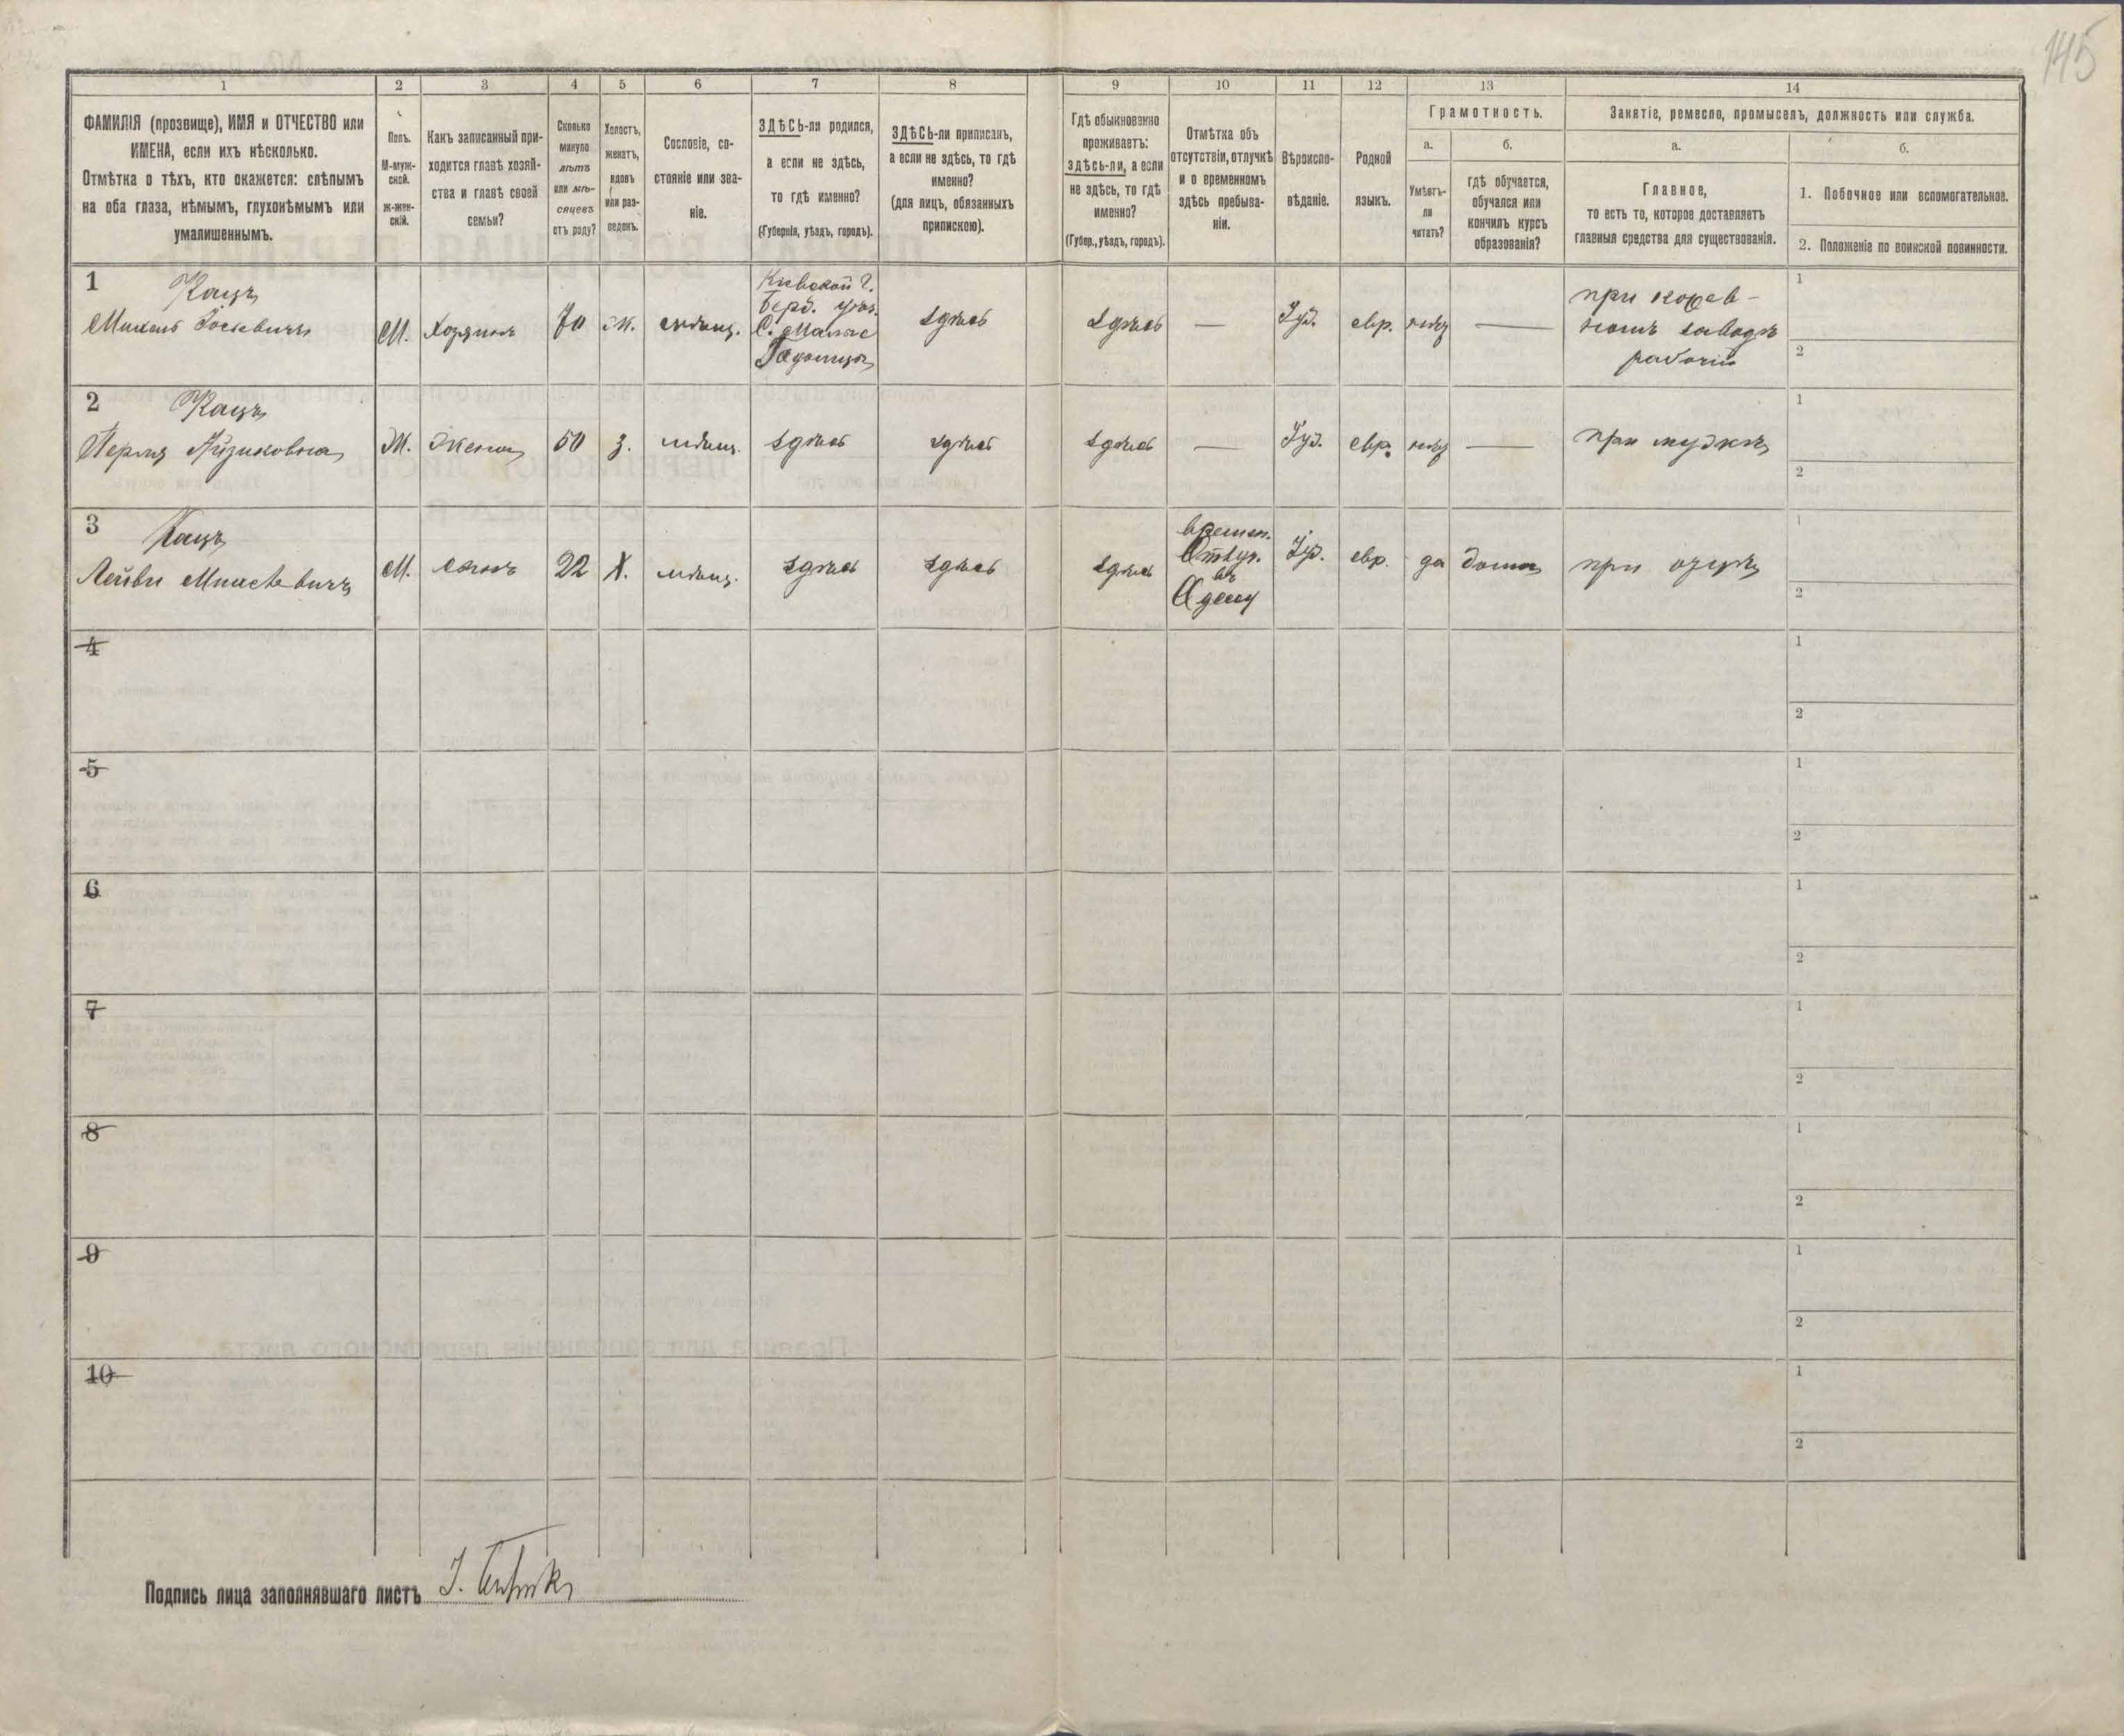 145
1 2 3 4 5 6 7 8 9 10 11 12 13 14
ФАМИЛІЯ (прозвище), ИМЯ и ОТЧЕСТВО или
ИМЕНА, если ихъ нѣсколько.
Отмѣтка о тѣхъ, кто окажется: слѣпымъ
на оба глаза, нѣмымъ, глухонѣмымъ или
умалишеннымъ.
Полъ.
М-муж-
ской.
ж-жен-
скій.
Какъ записанный при-
ходится главѣ хозяй-
ства и главѣ своей
семьи?
Сколько
минуло
лѣтъ
или мѣ-
сяцевъ
отъ роду?
Холостъ,
женатъ,
вдовъ
или раз-
веденъ.
Сословіе, со-
стояніе или зва-
ніе.
ЗДѢСЬ-ли родился,
а если не здѣсь,
то гдѣ именно?
(Губернія, уѣздъ, городъ).
ЗДѢСЬ-ли приписанъ,
а если не здѣсь, то гдѣ
именно?
(для лицъ, обязанныхъ
припискою).
Гдѣ обыкновенно
проживаетъ:
здѣсь-ли, а если
не здѣсь, то гдѣ
именно?
(Губер., уѣздъ, городъ).
Отмѣтка объ
отсутствіи, отлучкѣ
и о временномъ
здѣсь пребыва-
ніи.
Вѣроиспо-
вѣданіе.
Родной
языкъ.
Грамотность.
а.
Умѣетъ-
ли
читать?
б.
гдѣ обучается,
обучался или
кончилъ курсъ
образованія?
Занятіе, ремесло, промыселъ, должность или служба.
а.
Главное,
то есть то, которое доставляетъ
главныя средства для существованія.
б.
1. Побочное или вспомогательное.
2. Положеніе по воинской повинности.
1
Кацъ
Михель Іосевичъ
М.
Хозяинъ
70
ж.
мѣщ.
Кіевской г.
Берд. уѣз.
С. Малые
Гадомцы
здѣсь
здѣсь
—
Іуд.
евр.
нѣтъ
—
при кожев-
номъ заводѣ
рабочій
1
2
2
Кацъ
Перля Айзиковна
Ж.
Жена
50
з.
мѣщ.
здѣсь
здѣсь
здѣсь
—
Іуд.
евр.
нѣтъ
—
при мужѣ
1
2
3
Кацъ
Лейви Михелевичъ
М.
сынъ
22
Х.
мѣщ.
здѣсь
здѣсь
здѣсь
времен.
Отлуч.
въ
Одессу
Іуд.
евр.
да
дома
при отцѣ
1
2
4
1
2
5
1
2
6
1
2
7
1
2
8
1
2
9
1
2
10
1
2
Подпись лица заполнявшаго листъ